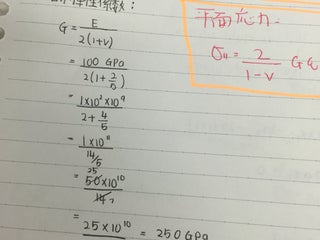 彈性係數：
G = E / 2(1+ν)
= 100 GPa / 2(1+2/5)
= 1×10²×10⁹ / 2+4/5
= 1×10¹¹ / 14/5
= 25 50×10¹⁰ / 14 7
= 25×10¹⁰ = 250 GPa
平面應力.
σ₁₁ = 2 / 1-ν G ε